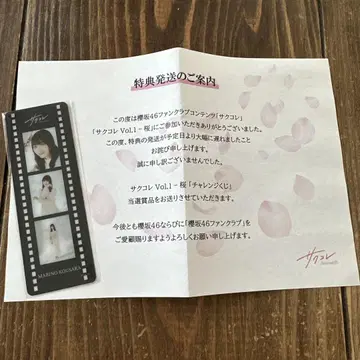 特典発送のご案内
この度は櫻坂46ファンクラブコンテンツ「サクコレ」
「サクコレ Vol.1 – 桜」にご参加いただきありがとうございました。
この度、特典の発送が予定日より大幅に遅れましたこと
お詫び申し上げます。
誠に申し訳ございませんでした。
サクコレ Vol.1 – 桜 「チャレンジくじ」
当選賞品をお送りさせていただきます。
今後とも櫻坂46ならびに「櫻坂46ファンクラブ」を
ご愛顧賜りますようよろしくお願い申し上げます。
サクコレ
サクコレ
MARINO KOUSAKA